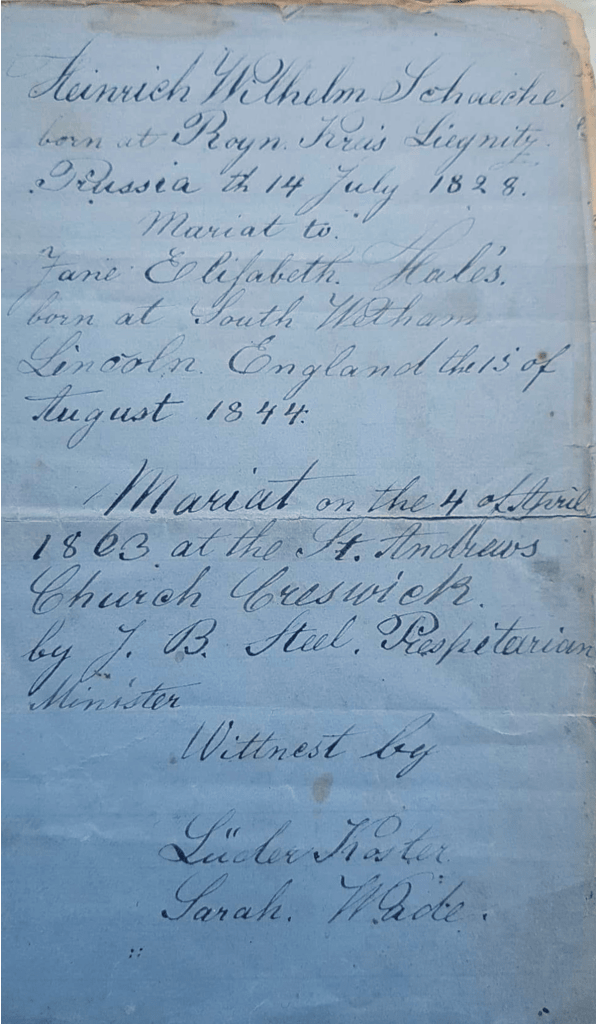 Heinrich Wilhelm Schaeche.
born at Royn. Kreis Liegnitz.
Prussia th 14 July 1828.
Mariat to.
Jane Elisabeth. Hales.
born at South Wetham
Lincoln. England the 15 of
August 1844:
Mariat on the 4 of April
1863. at the St. Andrews
Church Creswick.
by J. B. Steel. Prespetarian
Minister
Wittnest by
Lüder Koster
Sarah. Wade.